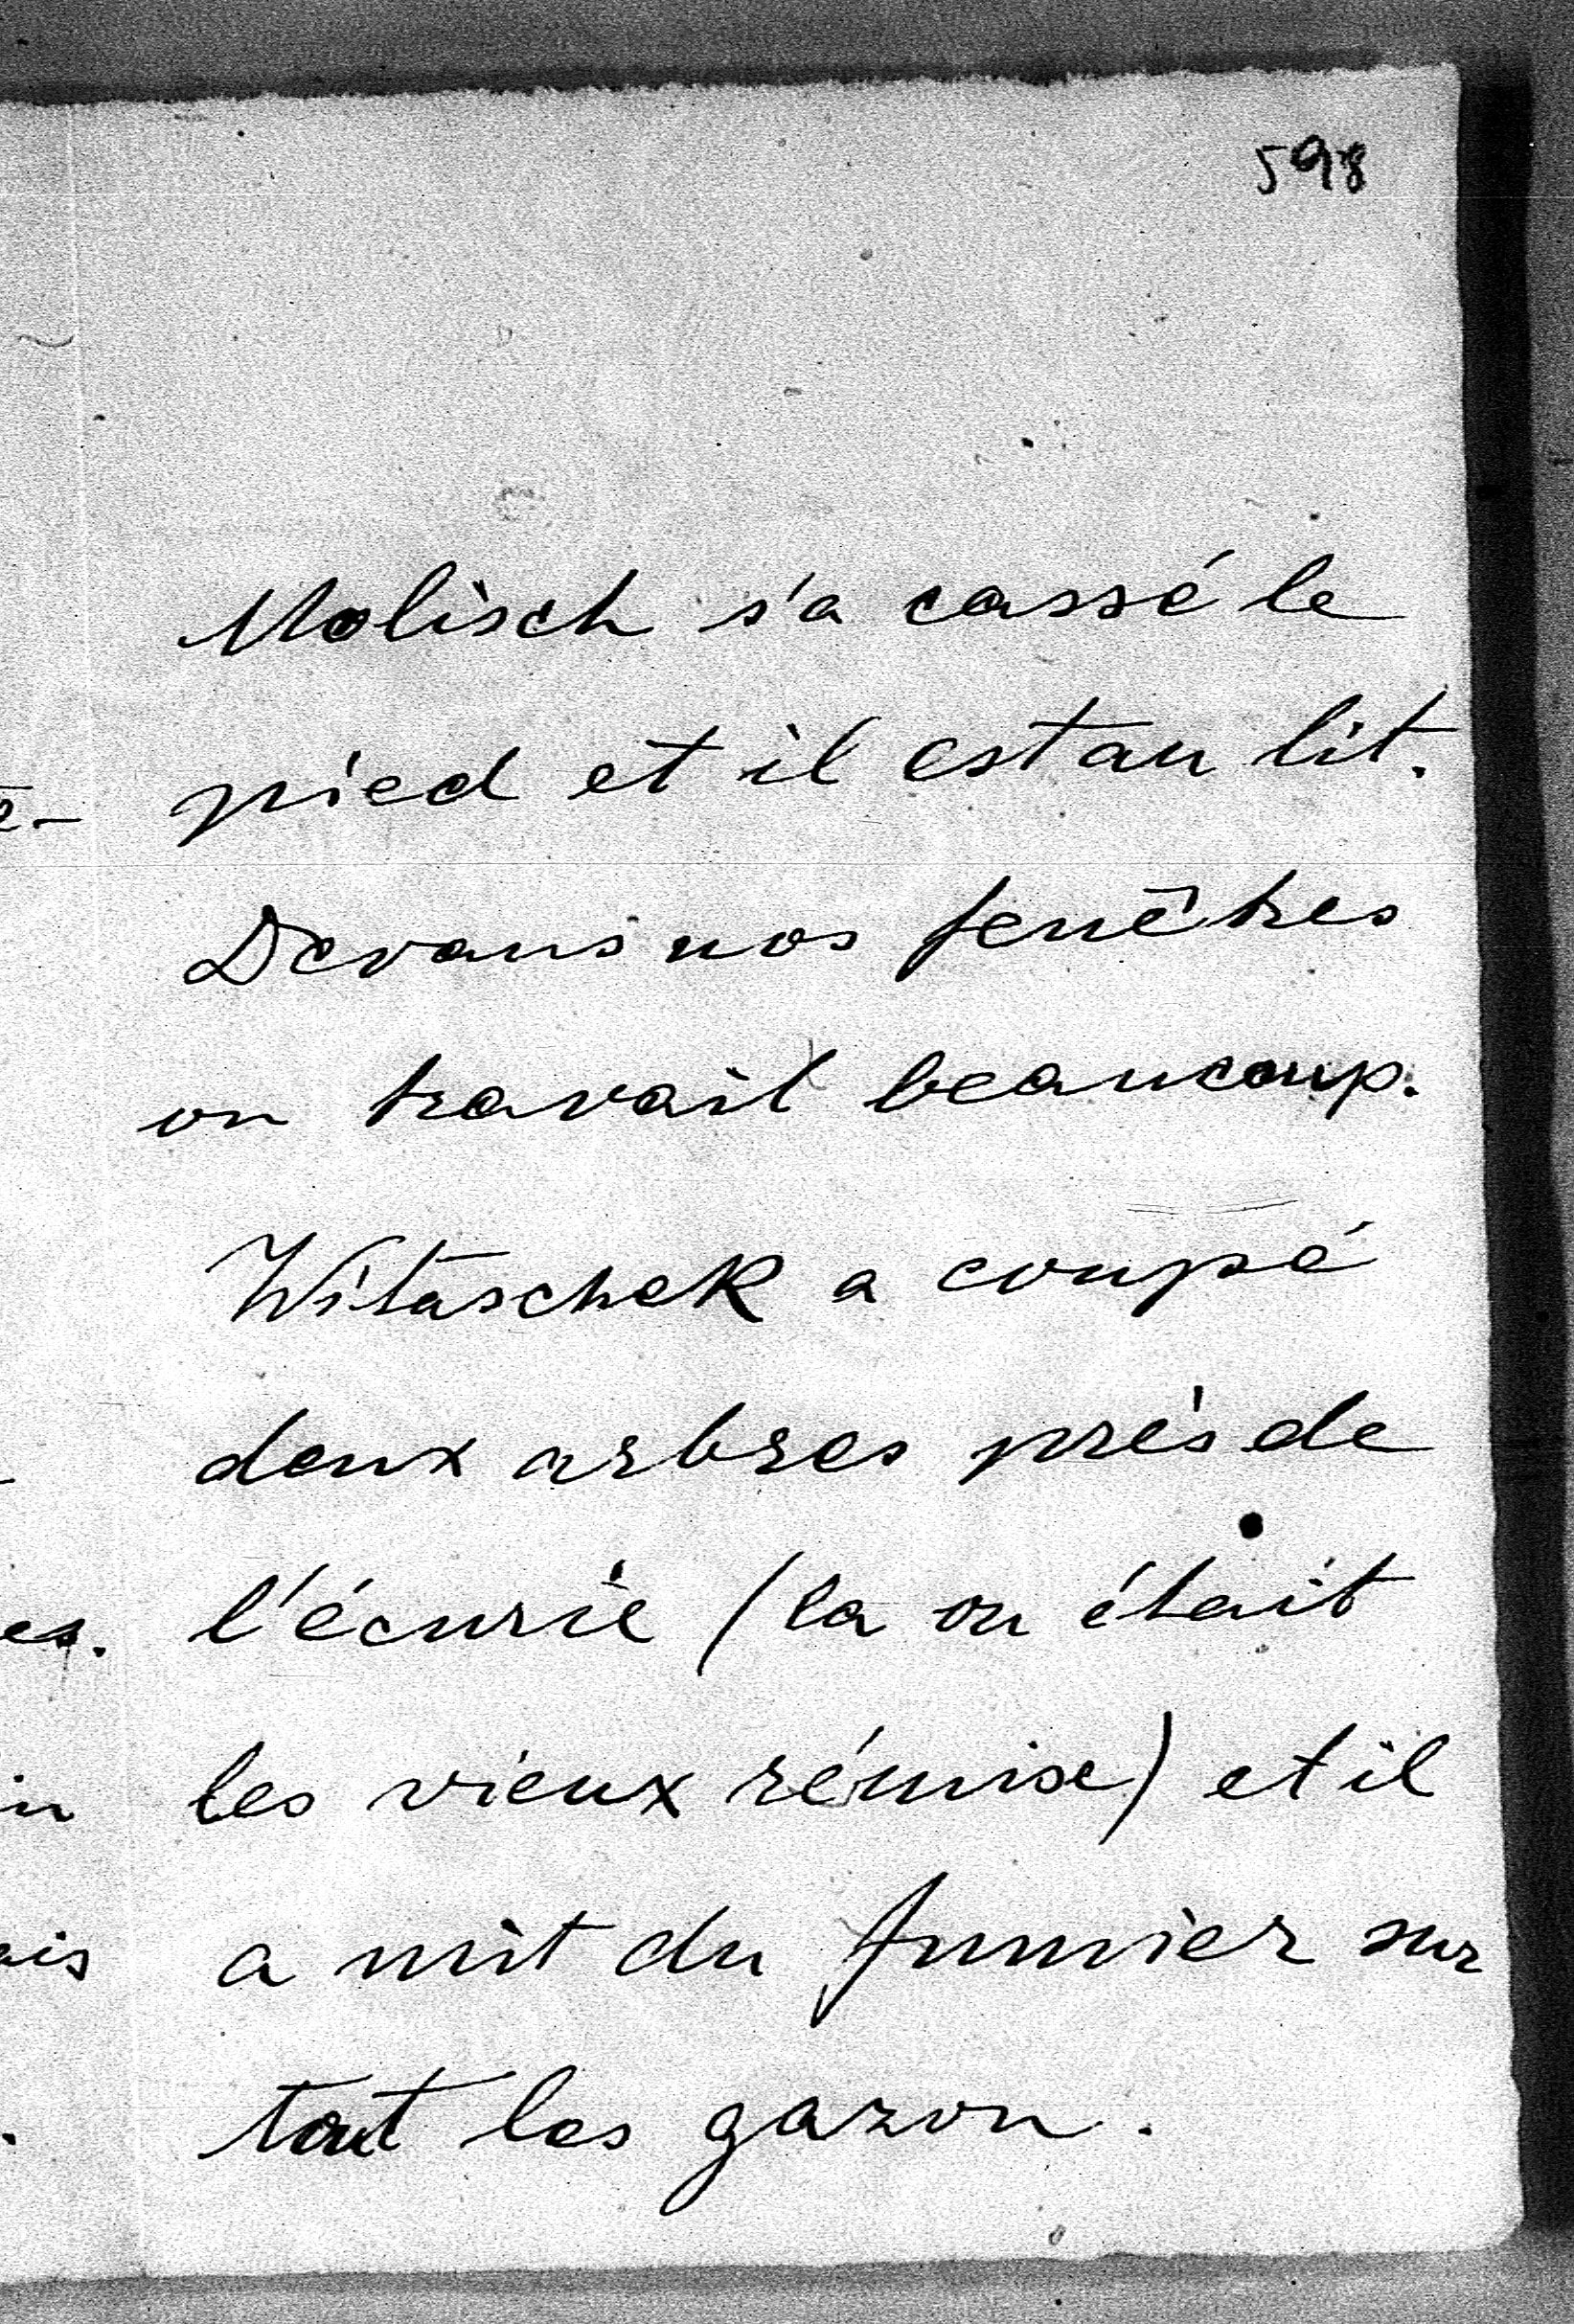 598
Molisch s'a cassé le
pied et il est au lit.
Devans nos fenêtres
on travail beaucoup.
Witaschek a coupé
deux arbres près de
l'écurie (la ou était
les vieux rémise) et il
a mit du fumier sur
tout les gazon.